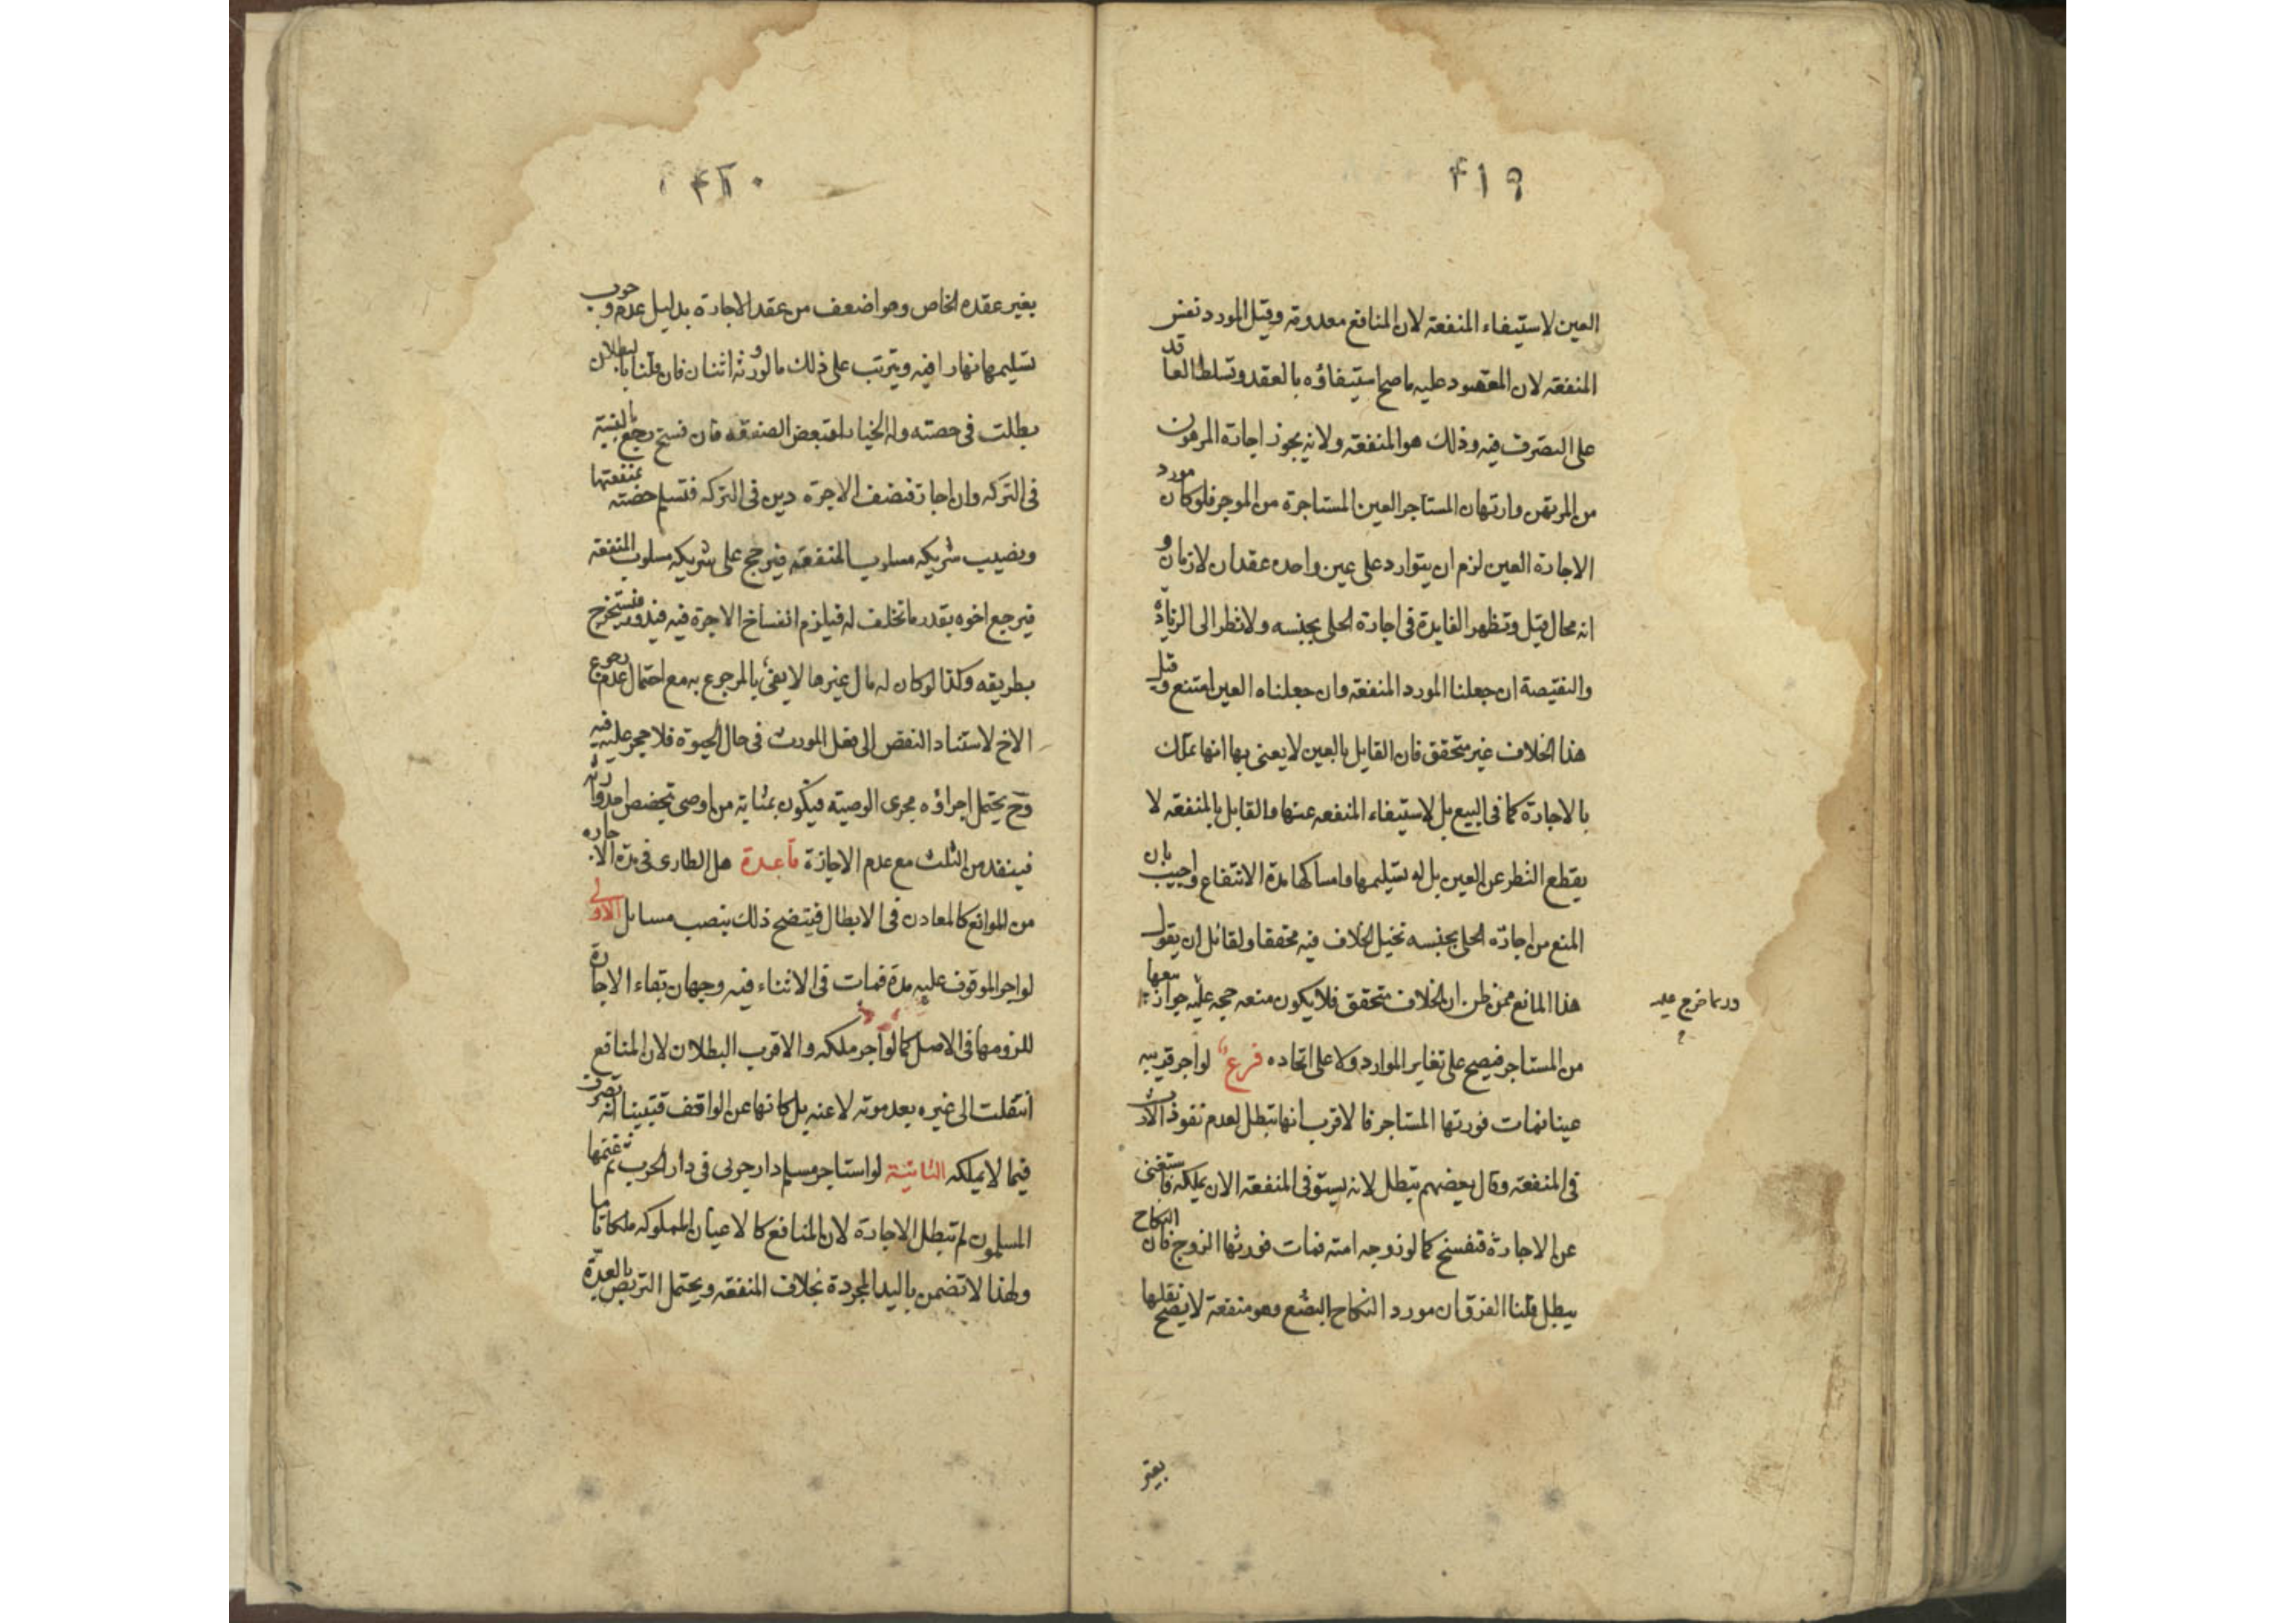 ٤١٩
العين لاستيفاء المنفعة لان المنافع معدومة وقيل المورد نفس
المنفعة لان المعقود عليه ما صح استيفاؤه بالعقد وتسلط العاقد
على التصرف فيه وذلك هو المنفعة ولانه يجوز اجارة المرهون
من المرتهن وارتهان المستاجر العين المستاجرة من الموجر فلو كان مورد
الاجارة العين لزم ان يتوارد على عين واحده عقدان لازمان و
انه محال قيل وتظهر الفايدة فى اجارة الحلى بجنسه ولا نظر الى الزيادة
والنقيصة ان جعلنا المورد المنفعة وان جعلناه العين امتنع وقيل
هذا الخلاف غير متحقق فان القايل بالعين لا يعنى بها انها تملك
بالاجارة كما فى البيع بل لاستيفاء المنفعه عنها والقايل بالمنفعة لا
يقطع النظر عن العين بل له تسليمها وامساكها مدة الانتفاع واجيب بان
المنع من اجارة الحلى بجنسه تخيل الخلاف فيه محققا ولقائل ان يقول
هذا المانع ممن ظن ان الخلاف متحقق فلا يكون منعه حجه عليه جواز بيعها
وربما خرج عليه
من المستاجر فيصح على تغاير الموارد ولا على اتحاده فرع لو اجر قريبه
عينا فمات فورثها المستاجر فالاقرب انها تبطل لعدم نفوذ الارث
فى المنفعة وقال بعضهم تبطل لانه يستوفى المنفعة الان بملكه فاستغنى
عن الاجارة فتفسخ كما لو زوجه امته فمات فورثها الزوج فان النكاح
يبطل قلنا الفرق ان مورد النكاح البضع وهو منفعة لا يصح نقلها
بغير
٤٢٠
بغير عقده الخاص وهو اضعف من عقد الاجارة بدليل عدم وجوب
تسليمها نهارا فيه ويترتب على ذلك ما لو ورثه اثنان فان قلنا بالبطلان
بطلت فى حصته وله الخيار لتبعض الصفقة فان فسخ رجع بالنسبة
فى التركه وان اجاز فنصف الاجرة دين فى التركه فتسلم حصته بمنفعتها
ونصيب شريكه مسلوب المنفعة فيرجع على شريكه مسلوب المنفعة
فيرجع اخوه بقدر ما تخلف له فيلزم انفساخ الاجرة فيه فيدور فيستخرج
بطريقه وكذا لو كان له مال غيرها لا يفى بالمرجوع به مع احتمال عدم رجوع
الاخ لاستناد النقص الى فعل المورث فى حال الحيوة فلا حجر عليه فيه
وح يحتمل اجراؤه مجرى الوصية فيكون بمثابة من اوصى تخصيص احد وراثه
فينفد من الثلث مع عدم الاجازة قاعدة هل الطارى فى مدة الاجاره
من الموانع كالمعادن فى الابطال فيتضح ذلك بنصب مسايل الاولى
لو اجر الموقوف عليه مدة فمات فى الاثناء فيه وجهان بقاء الاجارة
للزومها فى الاصل كما لو اجر ملكه والاقرب البطلان لان المنافع
انتقلت الى غيره بعد موته لا عنه بل كانها عن الواقف فتبينا انه تصرف
فيما لا يملكه الثانية لو استاجر مسلم دار حربى فى دار الحرب ثم غنمها
المسلمون لم تبطل الاجارة لان المنافع كالاعيان المملوكه ملكا تاما
ولهذا لا تضمن باليد المجردة بخلاف المنفعة ويحتمل التربص بالعدة